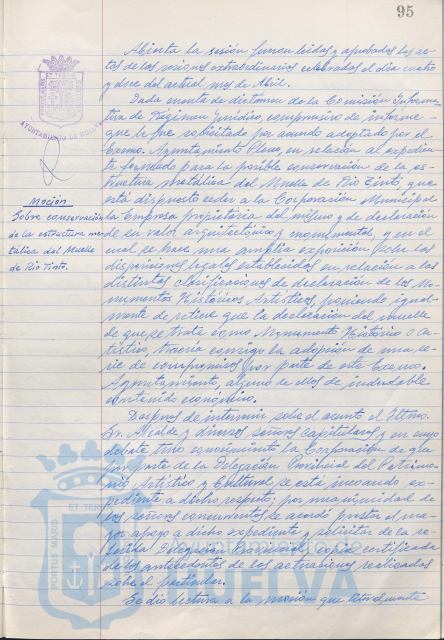 95
Abierta la sesión fueron leidas y aprobadas las ac-
tas de las sesiones extraordinarias celebradas el dia cuatro
y doce del actual mes de Abril.
Dada cuenta de dictamen de la Comisión Informa-
tiva de Régimen Juridico, comprensivo de informe
que le fue solicitado por acuerdo adoptado por el
Excmo. Ayuntamiento Pleno, en relación al expedien-
te incoado para la posible conservación de la es-
tructura metálica del Muelle de Rio Tinto, que
está dispuesto ceder a la Corporación Municipal
la Empresa propietaria del mismo y de declaración
de su valor arquitectónico y monumental, y en el
cual se hace una amplia exposición sobre las
disposiciones legales establecidas en relación a las
distintas clasificaciones de declaración de los Mo-
numentos Históricos Artisticos, poniendo igual-
mente de relieve que la declaración del muelle
de que se trata como Monumento Histórico o Ar-
tistico, traeria consigo la adopción de una se-
rie de compromisos por parte de este Excmo.
Ayuntamiento, alguno de ellos de indudable
contenido económico.
Despues de intervenir sobre el asunto el Iltmo.
Sr. Alcalde y diversos señores capitulares y en cuyo
debate tuvo conocimiento la Corporación de que
por parte de la Delegación Provincial del Patrimo-
nio Artistico y Cultural, se está incoando ex-
pediente a dicho respecto; por unanimidad de
los señores concurrentes se acordó prestar el ma-
yor apoyo a dicho expediente y solicitar de la re-
ferida Delegación Provincial, copia certificada
de los antecedentes de las actuaciones realizadas
sobre el particular.
Se dio lectura a la moción que literalmente
AYUNTAMIENTO DE HUELVA
Moción
Sobre conservación
de la estructura me-
tálica del Muelle
de Rio Tinto.
PORTUS MARIS
ET TERRAE
HUELVA